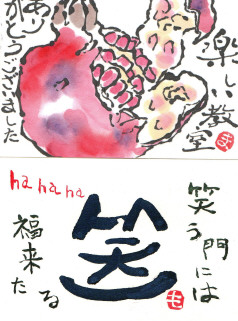 楽しい教室
ありがとうございました
ha ha ha
笑う門には
福来たる
笑